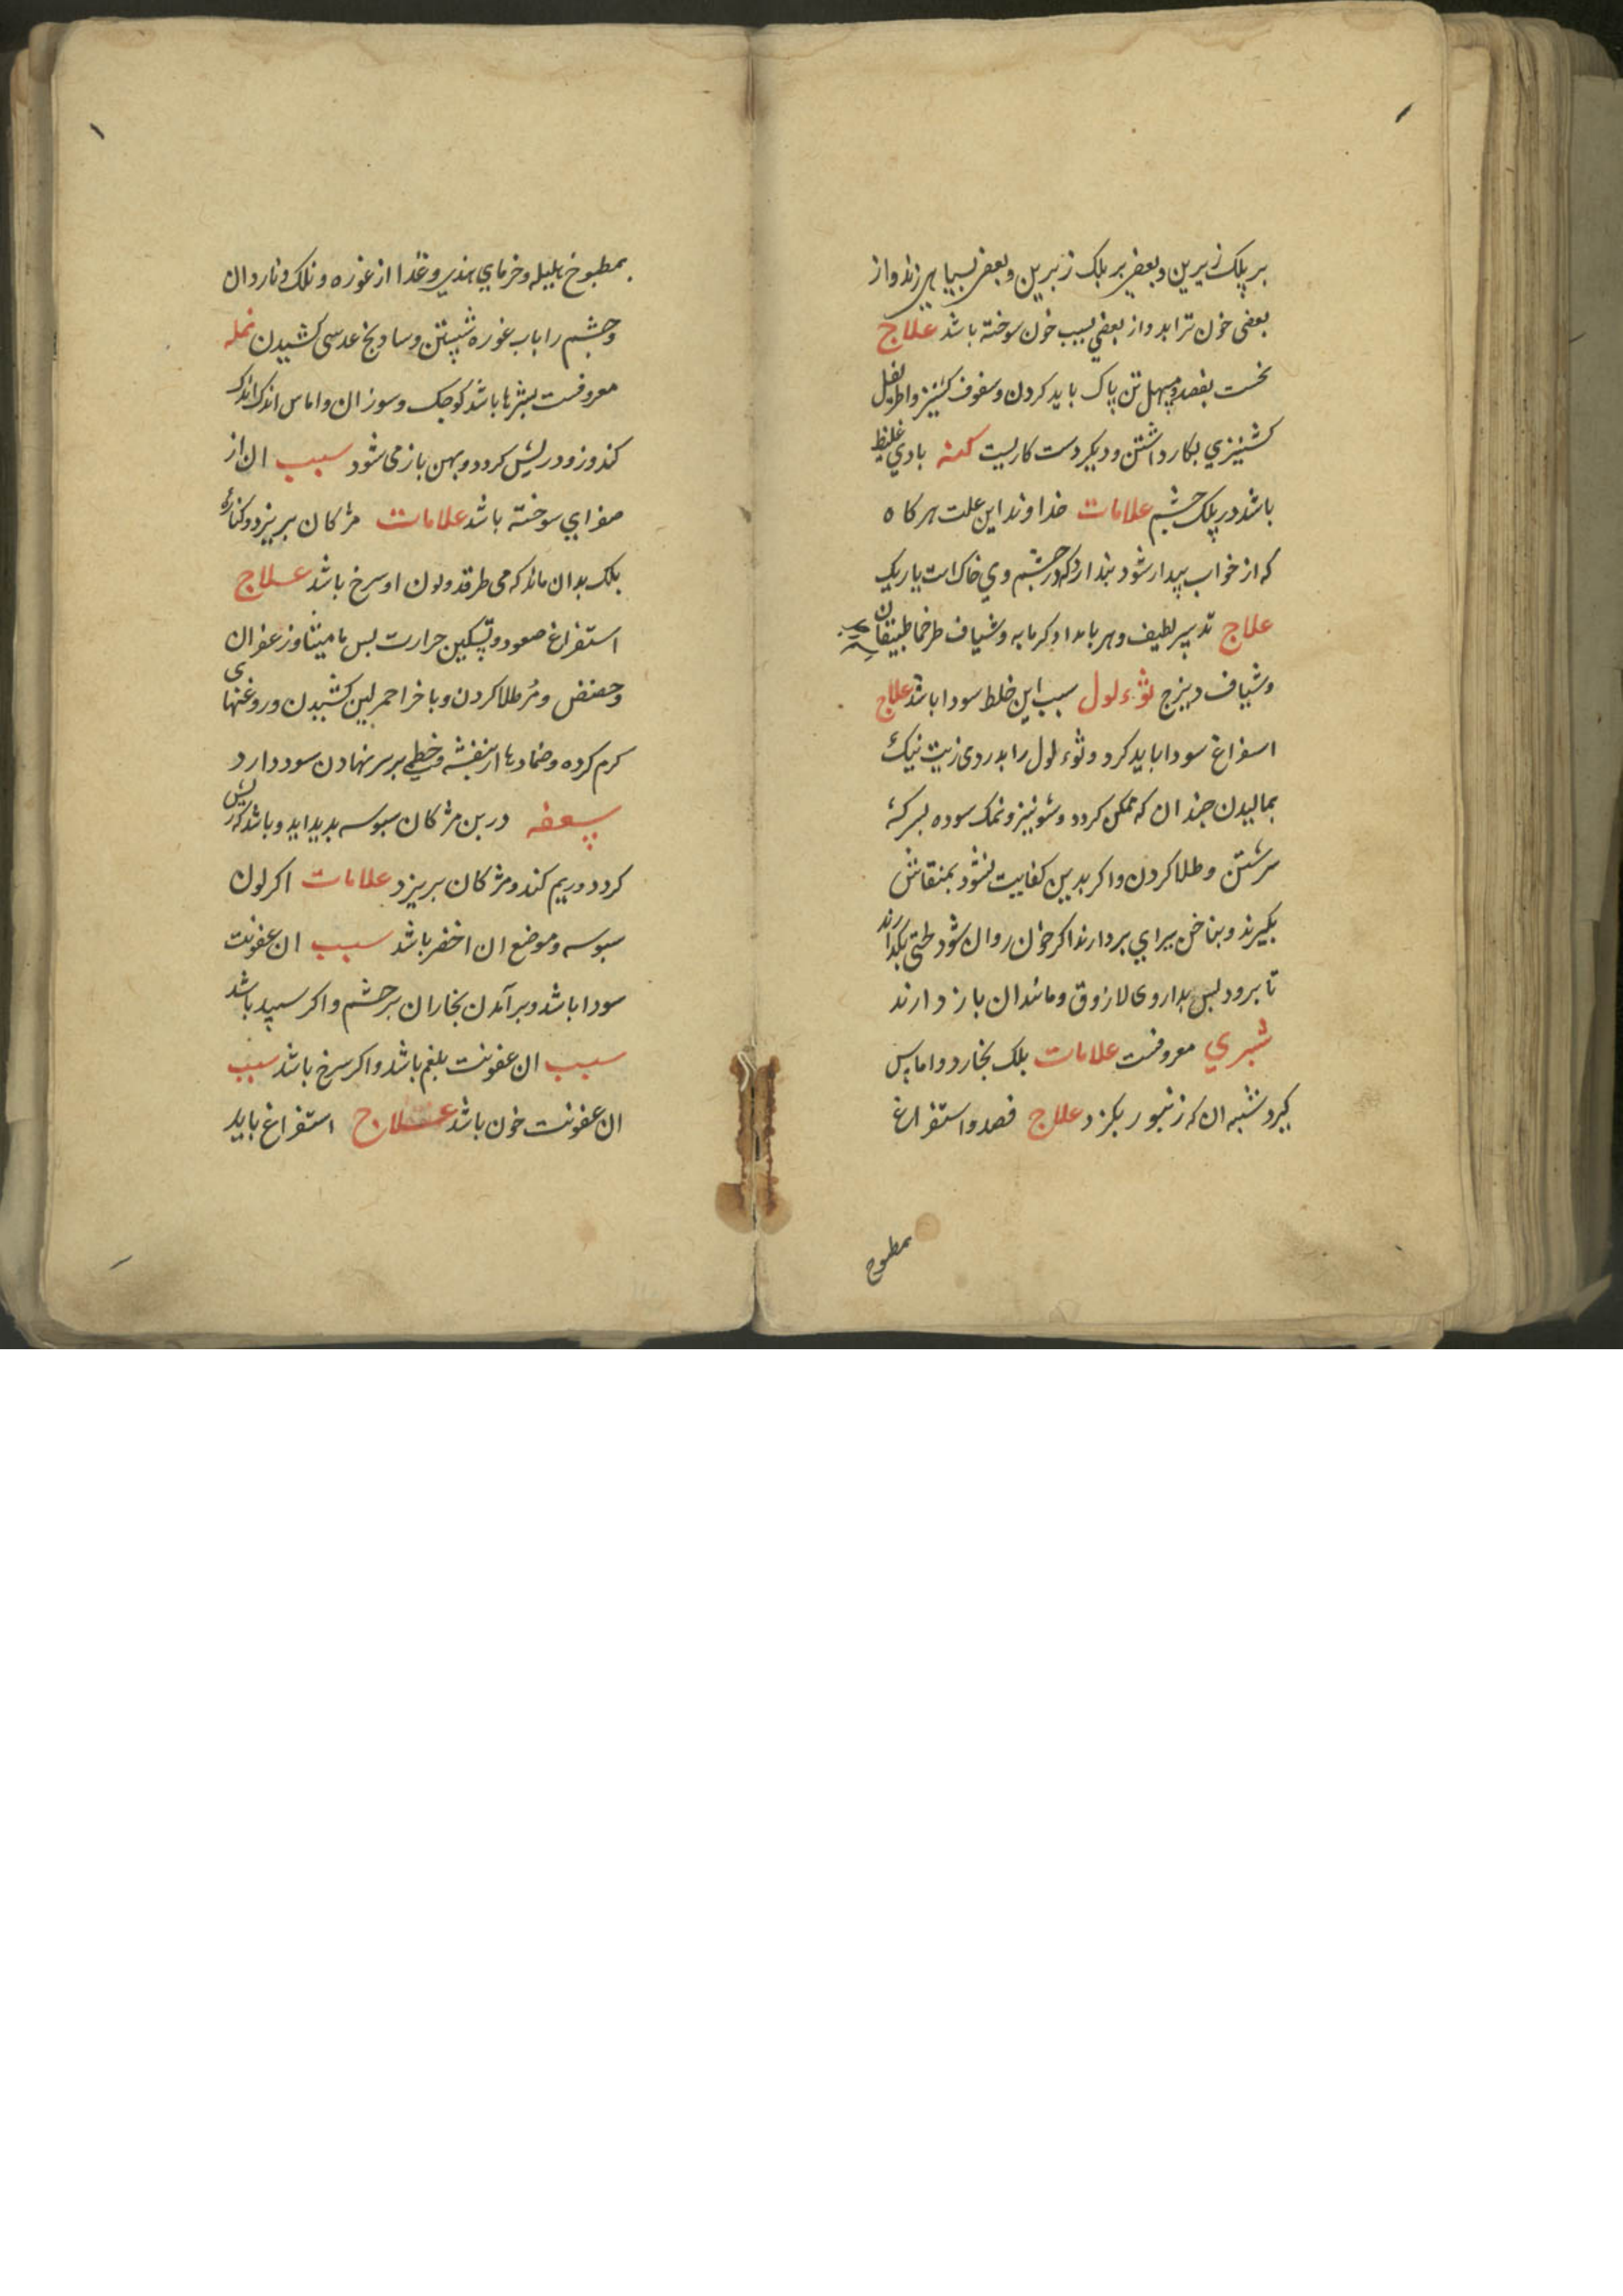 بر پلک زیرین و بعضی بر پلک زبرین و بعضی بسیاهی زند و از
بعضی خون ترابد و از بعضی بسبب خون سوخته باشد علاج
نخست بفصد و مسهل تن پاک باید کردن و سفوف کشنیز و اطریفل
کشنیزي بکار داشتن و دیکر دست کاریست کمنه بادي غلیظ
باشد در پلک چشم علامات خداوند این علت هر کاه
که از خواب بیدار شود بندارد که در چشم وي خاک است یا ریک
علاج تدبیر لطیف و هر بامداد کرمابه و شیاف طرخماطیقان
وشیاف دیزج ثوءلول سبب این خلط سودا باشد علاج
اسفراغ سودا باید کرد و ثوءلول را بدردی زیت نیک
بمالیدن جندان که ممکن کردد و شونیز و نمک سوده بسرکه
سرشتن و طلا کردن و اکر بدین کفایت نشود بمنقاش
بکیرند و بناخن بیرای بردارند اکر خون روان شود لختی بکذارند
تا برود بس بداروی لازوق و مانند ان باز دارند
شري معروفست علامات بلک بخارد و اماس
کیرد شبه ان که زنبور بکزد علاج فصد و استفراغ
مطبوخ
بمطبوخ هلیله و خرمای هندی و غذا از غوره و نلک و ناردان
و چشم را باب غوره شستن و سادنج عدسی کشیدن نمله
معروفست بثرها باشد کوجک و سوزان و اماس اندک اندک
کند و زود ریش کردد و بهن باز می شود سبب ان از
صفرای سوخته باشد علامات مژکان بریزد و کناره
بلک بدان ماند که می طرقد و لون او سرخ باشد علاج
استفراغ صعود و تسکین حرارت بس مامیثا و زعفران
و حضض و مر طلا کردن و باخر احمر لین کشیدن و روغنهای
کرم کرده و ضمادها از بنفشه و خطمی بر سر نهادن سود دارد
سعفه در بن مژکان سبوسه بدید اید و باشد که ریش
کردد و ریم کند و مژکان بریزد علامات اکر لون
سبوسه و موضع ان اخضر باشد سبب ان عفونت
سودا باشد و برآمدن بخار ان بر چشم و اکر سپید باشد
سبب ان عفونت بلغم باشد و اکر سرخ باشد سبب
ان عفونت خون باشد علاج استفراغ باید